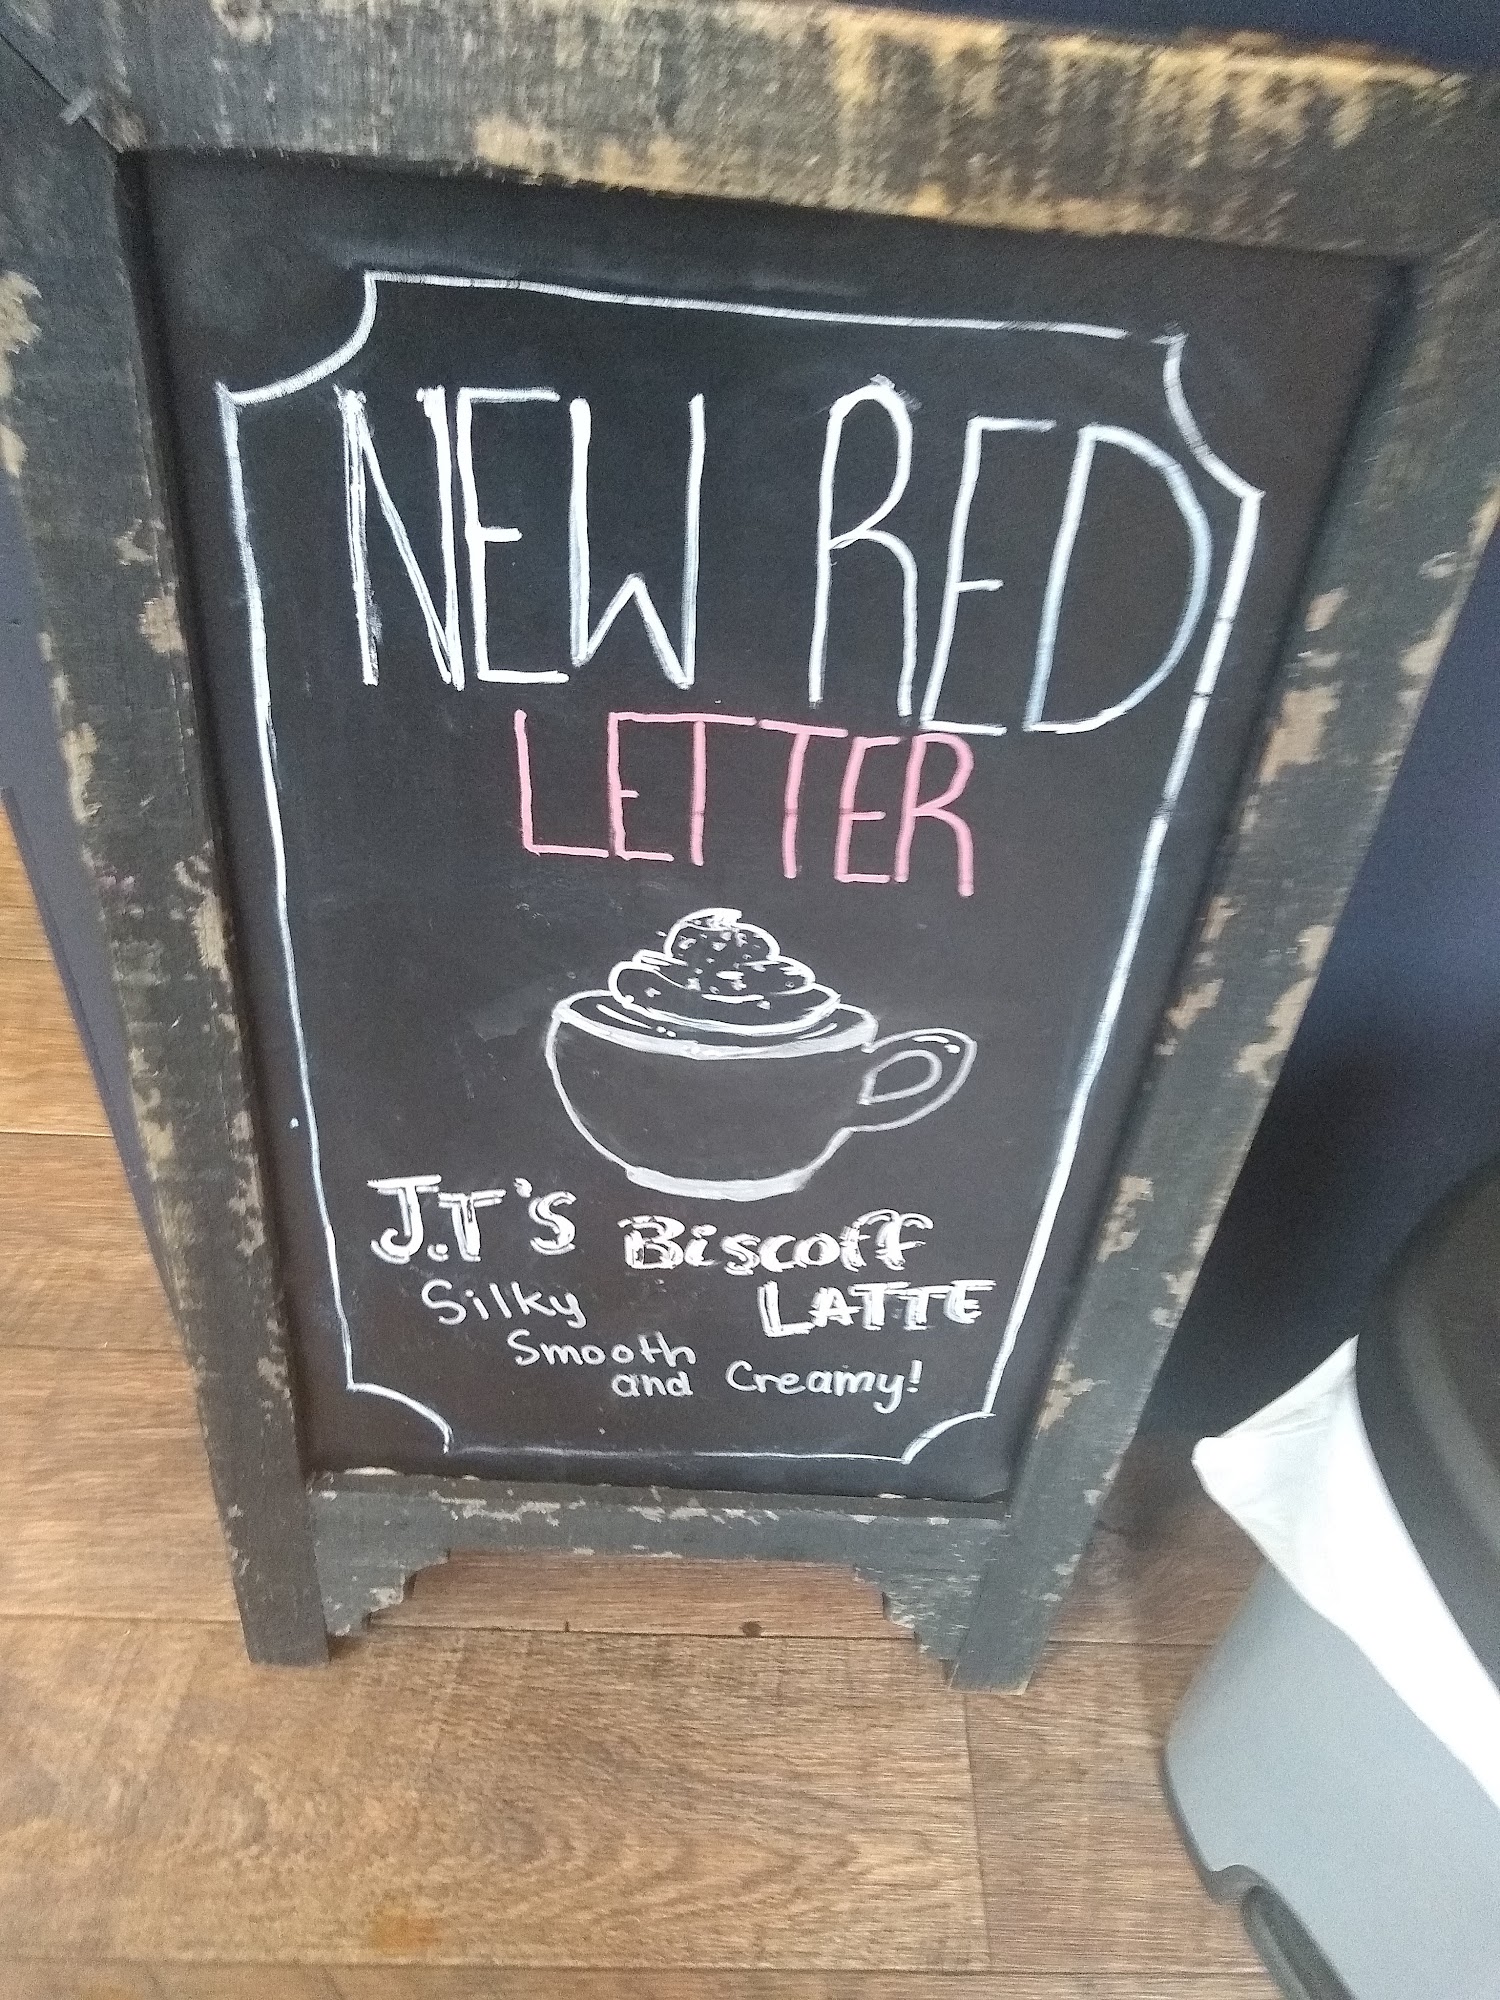 NEW RED
LETTER
J.T's Biscoff
LATTE
Silky
Smooth
and Creamy!